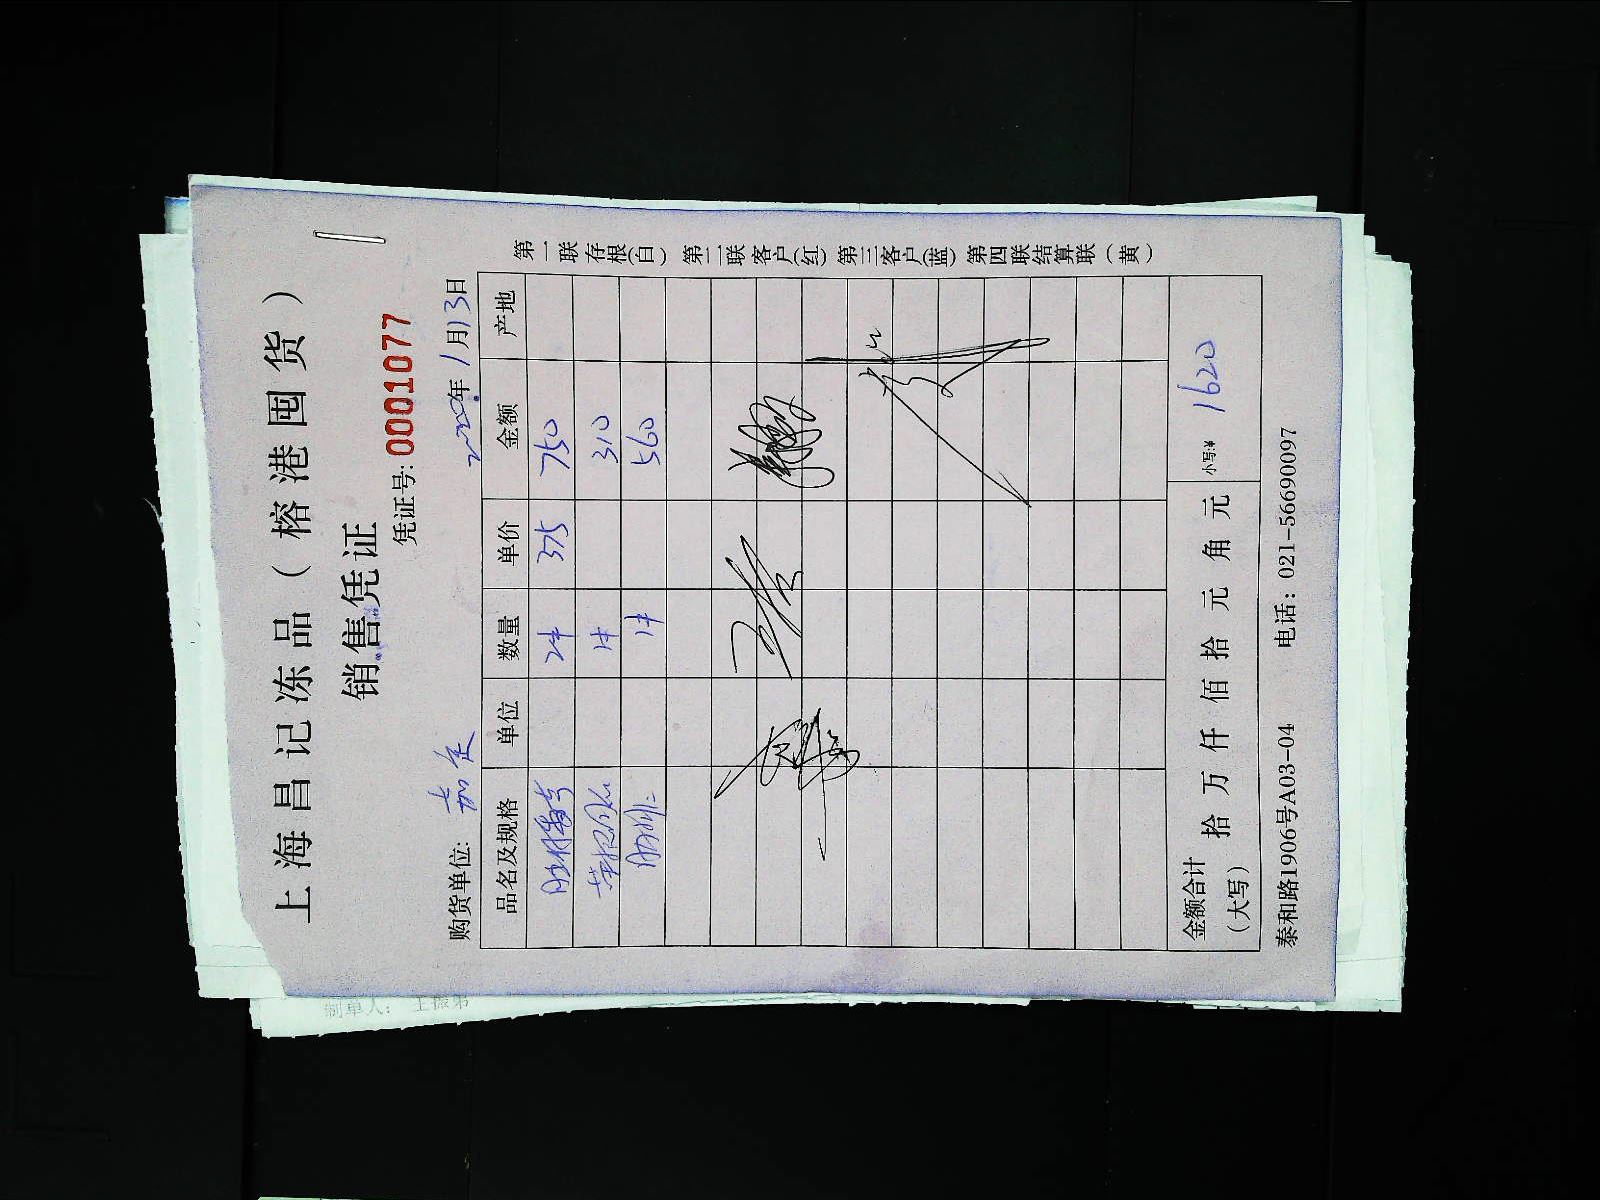 上海昌记冻品（榕港囤货）
销售凭证
凭证号: 0001077
购货单位: 嘉定 2020年1月13日
品名及规格 单位 数量 单价 金额 产地
2件 375 750
1件 310
1件 560
金额合计（大写） 拾 万 仟 佰 拾 元 角 元 小写:¥ 1620
泰和路1906号A03-04 电话：021-56690097
第一联存根(白) 第二联客户(红) 第三客户(蓝) 第四联结算联（黄）
制单人: